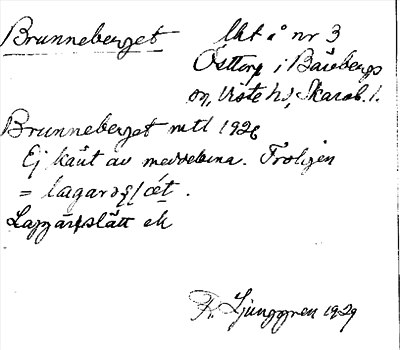 Brunneberget
Ukt å nr 3
Östtorp i Bärebergs
sn, Viste hd, Skarab. l.
Brunneberget mtl 1926
Ej känt av meddelarna. Troligen
=
Laggarslätt ek
R. Ljunggren 1929